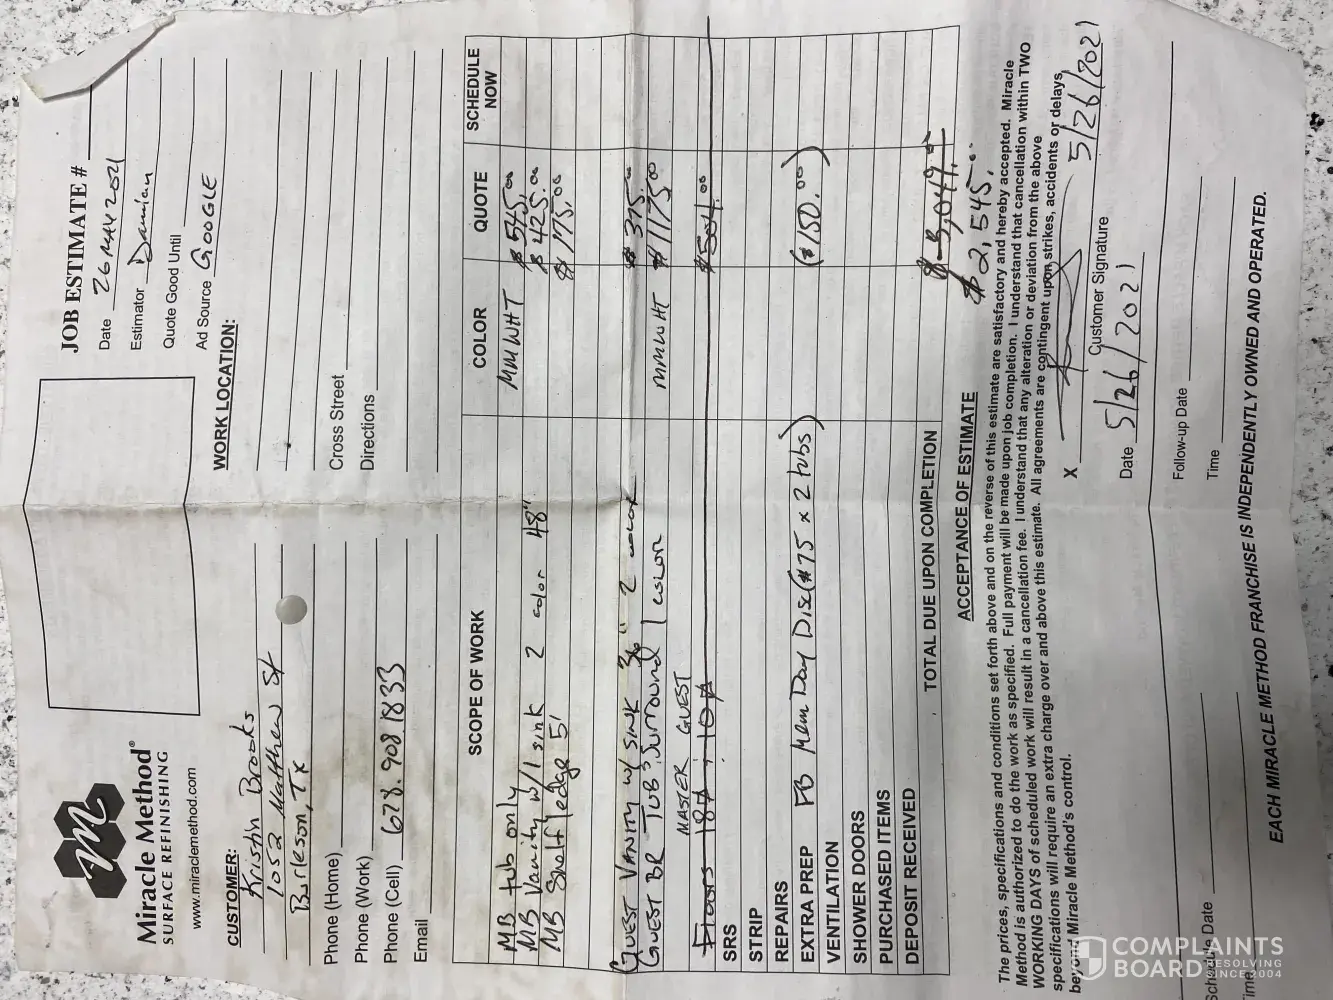 Miracle Method®
SURFACE REFINISHING
www.miraclemethod.com
JOB ESTIMATE #
Date 26 MAY 2021
Estimator Damian
Quote Good Until
Ad Source GOOGLE
CUSTOMER:
Kristin Brooks
1052 Matthew St
Burleson, Tx
Phone (Home)
Phone (Work)
Phone (Cell) 678.908 1833
Email
WORK LOCATION:
Cross Street
Directions
SCOPE OF WORK COLOR QUOTE SCHEDULE NOW
MB tub only MMWHT $545.00
MB Vanity w/1 sink 2 color 48" $425.00
MB Shelf/ledge 5' $175.00
GUEST VANITY w/ SINK 36" 2 color $375.00
GUEST BR TUB & SURROUND 1 COLOR MMWHT $1175.00
MASTER GUEST
Floors $504.00
SRS
STRIP
REPAIRS
EXTRA PREP FB Mem Day Disc ($75 x 2 tubs) ($150.00)
VENTILATION
SHOWER DOORS
PURCHASED ITEMS
DEPOSIT RECEIVED
TOTAL DUE UPON COMPLETION $3,049.00
$2,545.00
ACCEPTANCE OF ESTIMATE
The prices, specifications and conditions set forth above and on the reverse of this estimate are satisfactory and hereby accepted. Miracle
Method is authorized to do the work as specified. Full payment will be made upon job completion. I understand that cancellation within TWO
WORKING DAYS of scheduled work will result in a cancellation fee. I understand that any alteration or deviation from the above
specifications will require an extra charge over and above this estimate. All agreements are contingent upon strikes, accidents or delays
beyond Miracle Method's control.
X 5/26/2021
Customer Signature
Date 5/26/2021
Schedule Date
Time
Follow-up Date
Time
EACH MIRACLE METHOD FRANCHISE IS INDEPENDENTLY OWNED AND OPERATED.
COMPLAINTS
BOARD RESOLVING
SINCE 2004